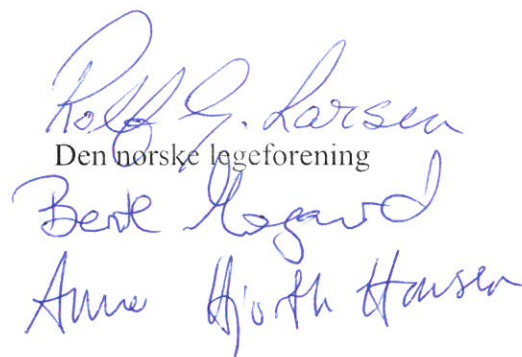 Rolf G. Larsen
Den norske legeforening
Bente Mogard
Anne Hjorth Hansen